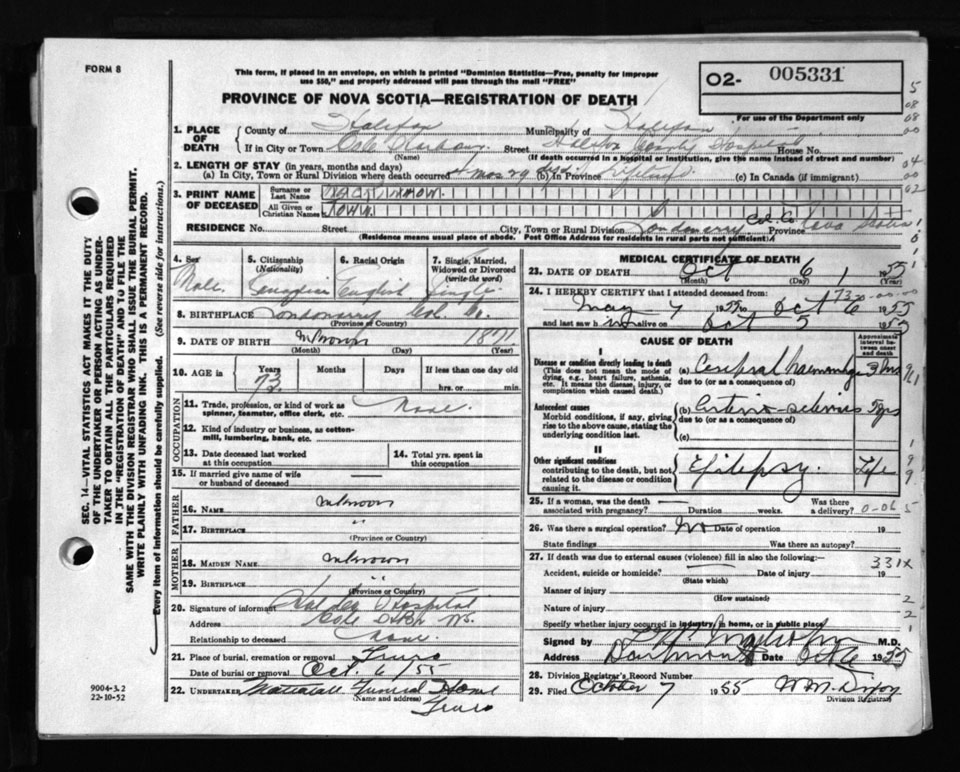 FORM 8
This form, if placed in an envelope, on which is printed "Dominion Statistics—Free, penalty for improper
use $50," and properly addressed will pass through the mail "FREE"
02- 005331
For use of the Department only
PROVINCE OF NOVA SCOTIA—REGISTRATION OF DEATH
1. PLACE OF DEATH
County of Halifax Municipality of Halifax
If in City or Town Cole Harbour Street Halifax County Hospital House No.
(Name) (If death occurred in a hospital or institution, give the name instead of street and number)
2. LENGTH OF STAY (in years, months and days)
(a) In City, Town or Rural Division where death occurred 4 mos 29 (b) In Province Lifetime (c) In Canada (if immigrant)
3. PRINT NAME OF DECEASED
Surname or Last Name
All Given or Christian Names
RESIDENCE No. Street City, Town or Rural Division Londonderry Col. Co. Province Nova Scotia
(Residence means usual place of abode. Post Office Address for residents in rural parts not sufficient)
4. Sex
Male
5. Citizenship (Nationality)
Canadian
6. Racial Origin
English
7. Single, Married, Widowed or Divorced (write the word)
Single
8. BIRTHPLACE Londonderry Col. Co.
(Province or Country)
9. DATE OF BIRTH unknown 1871
(Month) (Day) (Year)
10. AGE in Years Months Days If less than one day old
73 hrs. or min.
OCCUPATION
11. Trade, profession, or kind of work as
spinner, teamster, office clerk, etc. None.
12. Kind of industry or business, as cotton-
mill, lumbering, bank, etc.
13. Date deceased last worked at this occupation
14. Total yrs. spent in this occupation
15. If married give name of wife
or husband of deceased
FATHER
16. NAME unknown
17. BIRTHPLACE "
(Province or Country)
MOTHER
18. MAIDEN NAME unknown
19. BIRTHPLACE "
(Province or Country)
20. Signature of informant Hospital
Address Cole
Relationship to deceased None.
21. Place of burial, cremation or removal Truro
Date of burial or removal Oct. 6/55
22. UNDERTAKER Mattatall Funeral Home
Truro
MEDICAL CERTIFICATE OF DEATH
23. DATE OF DEATH Oct 6 1955
(Month) (Day)
24. I HEREBY CERTIFY that I attended deceased from:
May 7 1955 to Oct 6 1955
and last saw h im alive on Oct 5 1955
CAUSE OF DEATH
Approximate interval between onset and death
I
Disease or condition directly leading to death
(This does not mean the mode of
dying, e.g., heart failure, asthenia,
etc. It means the disease, injury, or
complication which caused death.)
(a) Cerebral haemorrhage 3 hrs
due to (or as a consequence of)
Antecedent causes
Morbid conditions, if any, giving
rise to the above cause, stating the
underlying condition last.
(b) Arterio-sclerosis 5 yrs
due to (or as a consequence of)
(c)
II
Other significant conditions
contributing to the death, but not
related to the disease or condition
causing it.
Epilepsy. Life
25. If a woman, was the death Was there
associated with pregnancy? Duration weeks. a delivery?
26. Was there a surgical operation? No Date of operation 19
State findings Was there an autopsy?
27. If death was due to external causes (violence) fill in also the following:
331X
Accident, suicide or homicide? Date of injury 19
(State which)
Manner of injury
(How sustained)
Nature of injury
Specify whether injury occurred in industry, in home, or in public place
Signed by M.D.
Address Dartmouth Date Oct 6 1955
28. Division Registrar's Record Number
29. Filed October 7 1955
Division Registrar
SEC. 14—VITAL STATISTICS ACT MAKES IT THE DUTY
OF THE UNDERTAKER OR PERSON ACTING AS UNDER-
TAKER TO OBTAIN ALL THE PARTICULARS REQUIRED
IN THE "REGISTRATION OF DEATH" AND TO FILE THE
SAME WITH THE DIVISION REGISTRAR WHO SHALL ISSUE THE BURIAL PERMIT.
WRITE PLAINLY WITH UNFADING INK. THIS IS A PERMANENT RECORD.
Every item of information should be carefully supplied. (See reverse side for instructions.)
9004-3.2
22-10-52